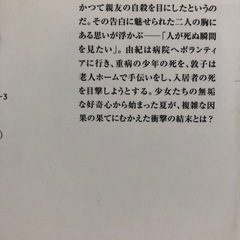 かつて親友の自殺を目にしたというの
だ。その告白に魅せられた二人の胸に
ある思いが浮かぶ――「人が死ぬ瞬間
を見たい」。由紀は病院へボランティ
アに行き、重病の少年の死を、敦子は
老人ホームで手伝いをし、入居者の死
を目撃しようとする。少女たちの無垢
な好奇心から始まった夏が、複雑な因
果の果てにむかえた衝撃の結末とは?
-3
)